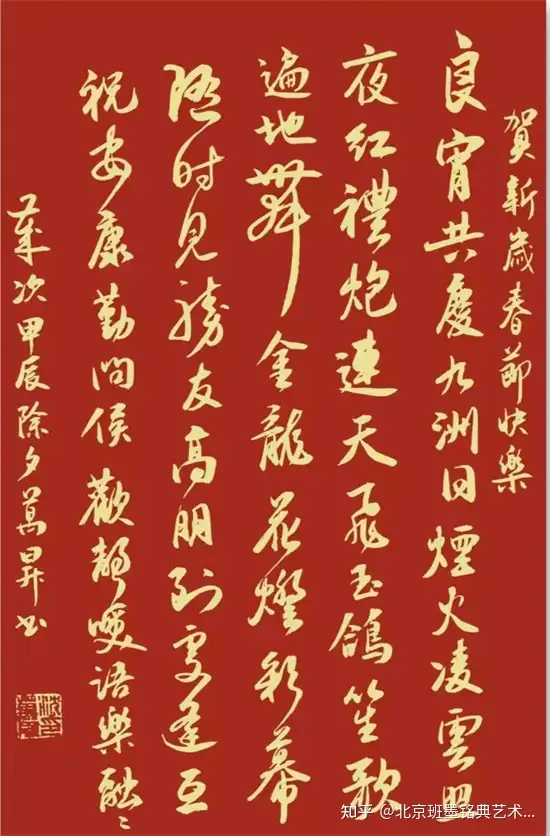 賀新歲春節快樂
良宵共慶九洲同煙火凌雲照
夜紅禮炮連天飛玉鴿笙歌
遍地舞金龍花燈彩幕
隨時見勝友高朋到處逢互
祝安康勤問侯歡聲笑語樂融々
歲次甲辰除夕萬昇书
知乎 @北京班墨铭典艺术...